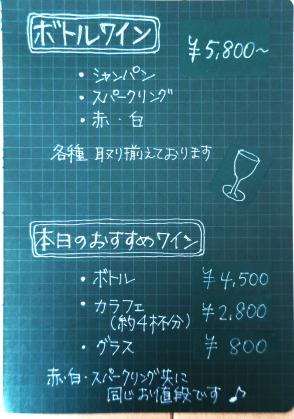 ボトルワイン ¥5,800~
・シャンパン
・スパークリング
・赤・白
各種 取り揃えております
本日のおすすめワイン
・ボトル ¥4,500
・カラフェ ¥2,800
(約4杯分)
・グラス ¥800
赤・白・スパークリング共に
同じお値段です♪